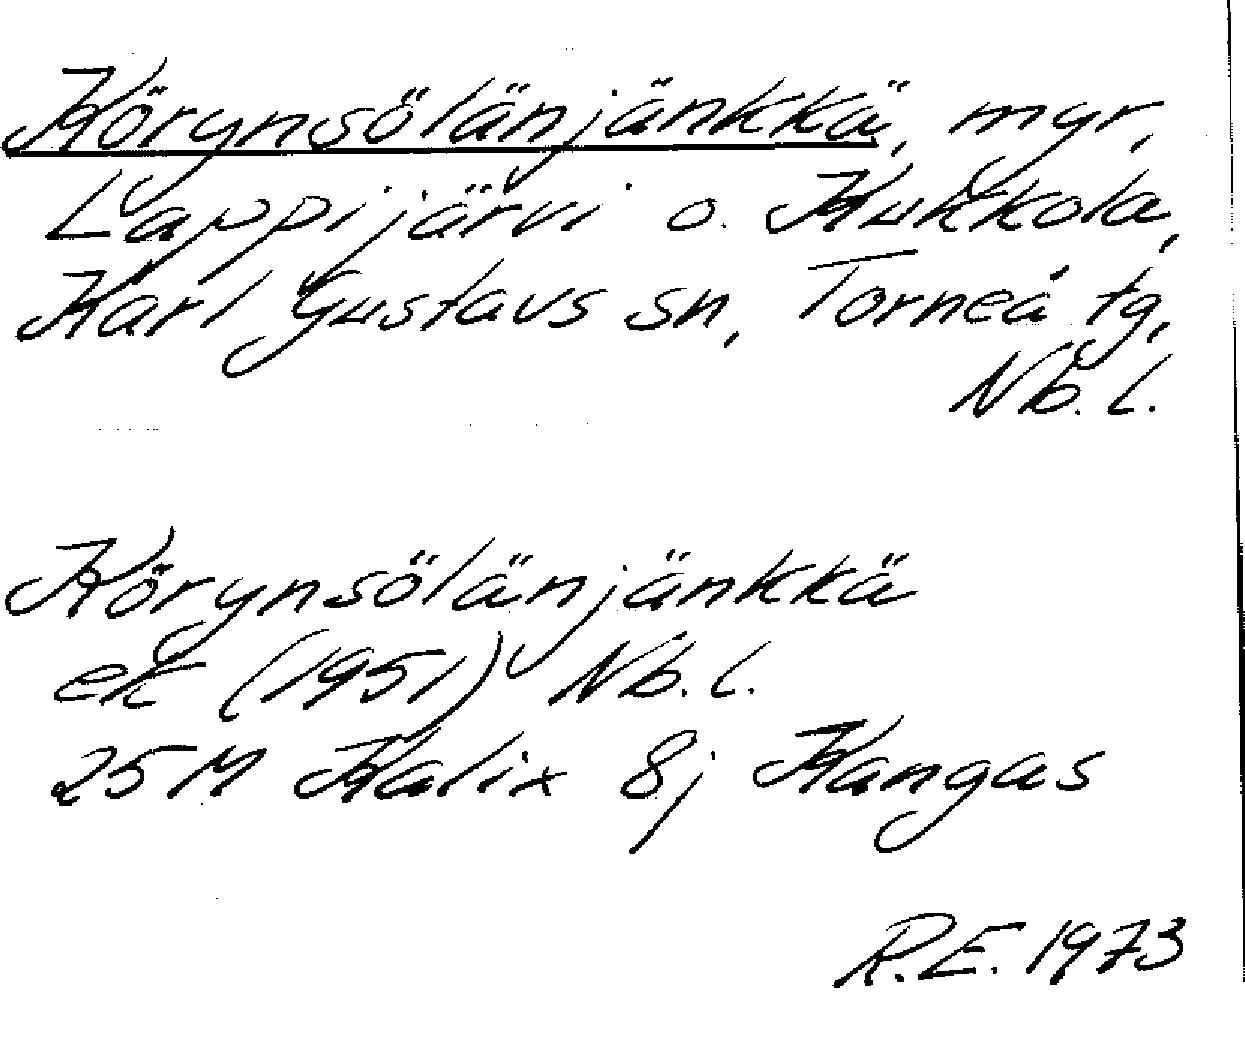 Körynsölänjänkkä, myr,
Lappijärvi o. Kukkola,
Karl Gustavs sn, Torneå tg,
Nb. l.
Körynsölänjänkkä
ek (1951) Nb. l.
25 M Kalix 8j Kangas
R.E. 1973